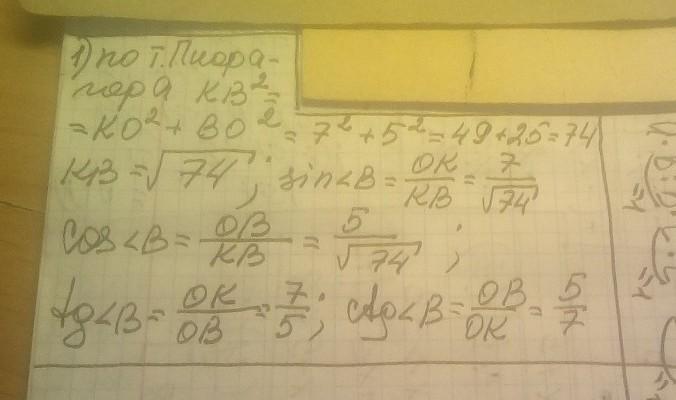 1) по т. Пифа-
гора KB² =
= KO² + BO² = 7² + 5² = 49 + 25 = 74
KB = √74; sin∠B = OK/KB = 7/√74
cos∠B = OB/KB = 5/√74;
tg∠B = OK/OB = 7/5; ctg∠B = OB/OK = 5/7